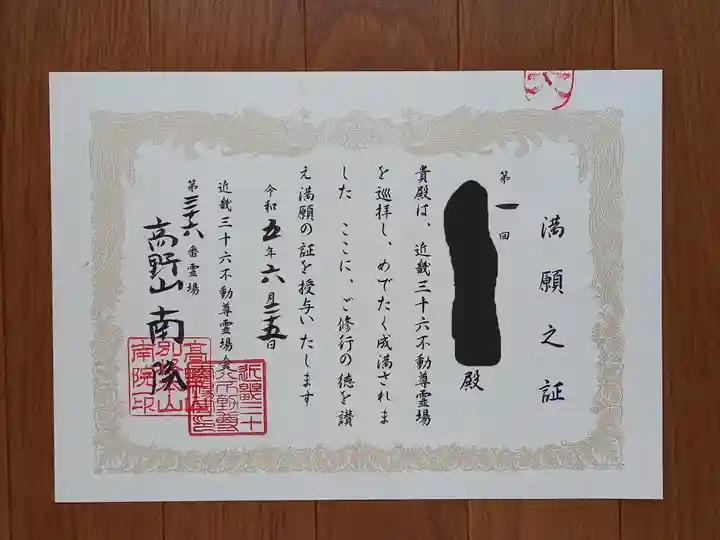 満願之証
第一回
殿
貴殿は、近畿三十六不動尊霊場
を巡拝し、めでたく成満されま
した ここに、ご修行の徳を讃
え満願の証を授与いたします
令和五年六月二十五日
近畿三十六不動尊霊場会
第三十六番霊場
高野山南院
近畿三十
六不動尊